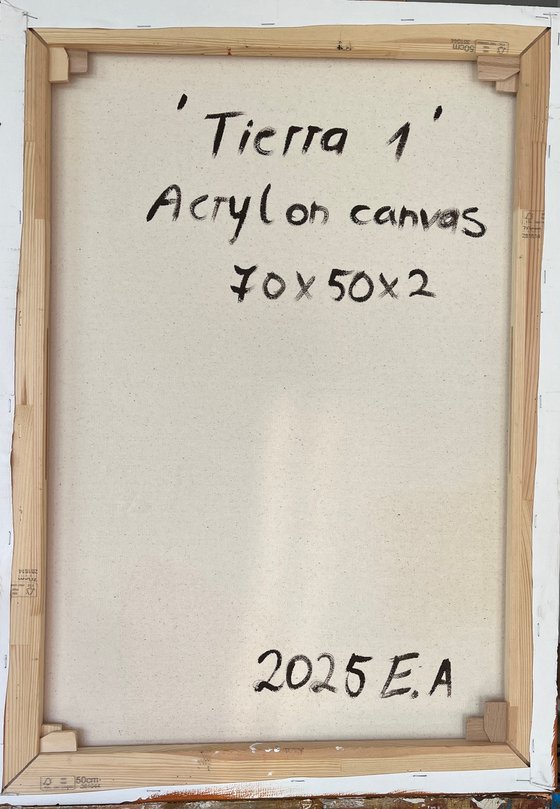 'Tierra 1'
Acryl on canvas
70x50x2
2025 E.A
50cm
50cm